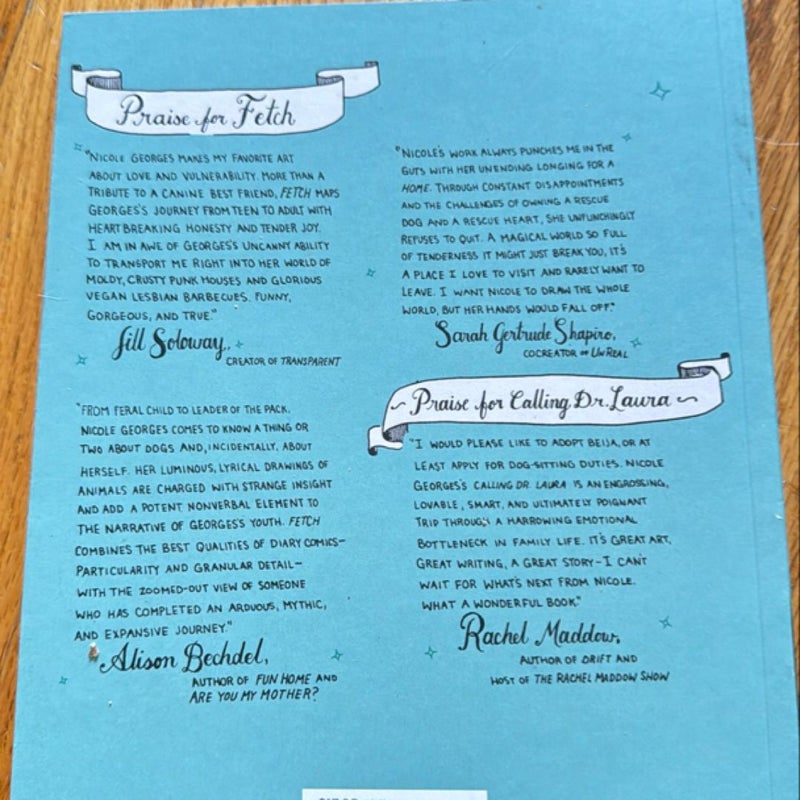 Praise for Fetch
"NICOLE GEORGES MAKES MY FAVORITE ART
ABOUT LOVE AND VULNERABILITY. MORE THAN A
TRIBUTE TO A CANINE BEST FRIEND, FETCH MAPS
GEORGES'S JOURNEY FROM TEEN TO ADULT WITH
HEARTBREAKING HONESTY AND TENDER JOY.
I AM IN AWE OF GEORGES'S UNCANNY ABILITY
TO TRANSPORT ME RIGHT INTO HER WORLD OF
MOLDY, CRUSTY PUNK HOUSES AND GLORIOUS
VEGAN LESBIAN BARBECUES. FUNNY,
GORGEOUS, AND TRUE."
Jill Soloway,
CREATOR OF TRANSPARENT
"FROM FERAL CHILD TO LEADER OF THE PACK,
NICOLE GEORGES COMES TO KNOW A THING OR
TWO ABOUT DOGS AND, INCIDENTALLY, ABOUT
HERSELF. HER LUMINOUS, LYRICAL DRAWINGS OF
ANIMALS ARE CHARGED WITH STRANGE INSIGHT
AND ADD A POTENT NONVERBAL ELEMENT TO
THE NARRATIVE OF GEORGES'S YOUTH. FETCH
COMBINES THE BEST QUALITIES OF DIARY COMICS—
PARTICULARITY AND GRANULAR DETAIL—
WITH THE ZOOMED-OUT VIEW OF SOMEONE
WHO HAS COMPLETED AN ARDUOUS, MYTHIC,
AND EXPANSIVE JOURNEY."
Alison Bechdel,
AUTHOR OF FUN HOME AND
ARE YOU MY MOTHER?
"NICOLE'S WORK ALWAYS PUNCHES ME IN THE
GUTS WITH HER UNENDING LONGING FOR A
HOME. THROUGH CONSTANT DISAPPOINTMENTS
AND THE CHALLENGES OF OWNING A RESCUE
DOG AND A RESCUE HEART, SHE UNFLINCHINGLY
REFUSES TO QUIT. A MAGICAL WORLD SO FULL
OF TENDERNESS IT MIGHT JUST BREAK YOU, IT'S
A PLACE I LOVE TO VISIT AND RARELY WANT TO
LEAVE. I WANT NICOLE TO DRAW THE WHOLE
WORLD, BUT HER HANDS WOULD FALL OFF."
Sarah Gertrude Shapiro,
COCREATOR OF UNREAL
Praise for Calling Dr. Laura
"I WOULD PLEASE LIKE TO ADOPT BEIJA, OR AT
LEAST APPLY FOR DOG-SITTING DUTIES. NICOLE
GEORGES'S CALLING DR. LAURA IS AN ENGROSSING,
LOVABLE, SMART, AND ULTIMATELY POIGNANT
TRIP THROUGH A HARROWING EMOTIONAL
BOTTLENECK IN FAMILY LIFE. IT'S GREAT ART,
GREAT WRITING, A GREAT STORY—I CAN'T
WAIT FOR WHAT'S NEXT FROM NICOLE.
WHAT A WONDERFUL BOOK."
Rachel Maddow,
AUTHOR OF DRIFT AND
HOST OF THE RACHEL MADDOW SHOW